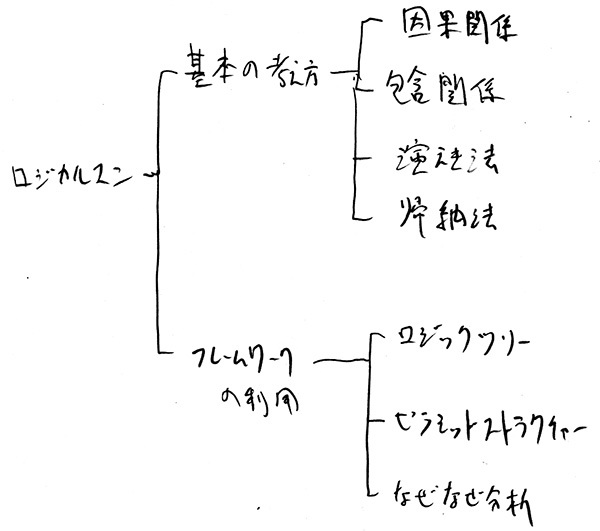 ロジカルスン
基本の考え方
因果関係
包含関係
演えき法
帰納法
フレームワーク
の利用
ロジックツリー
ピラミットストラクチャー
なぜなぜ分析